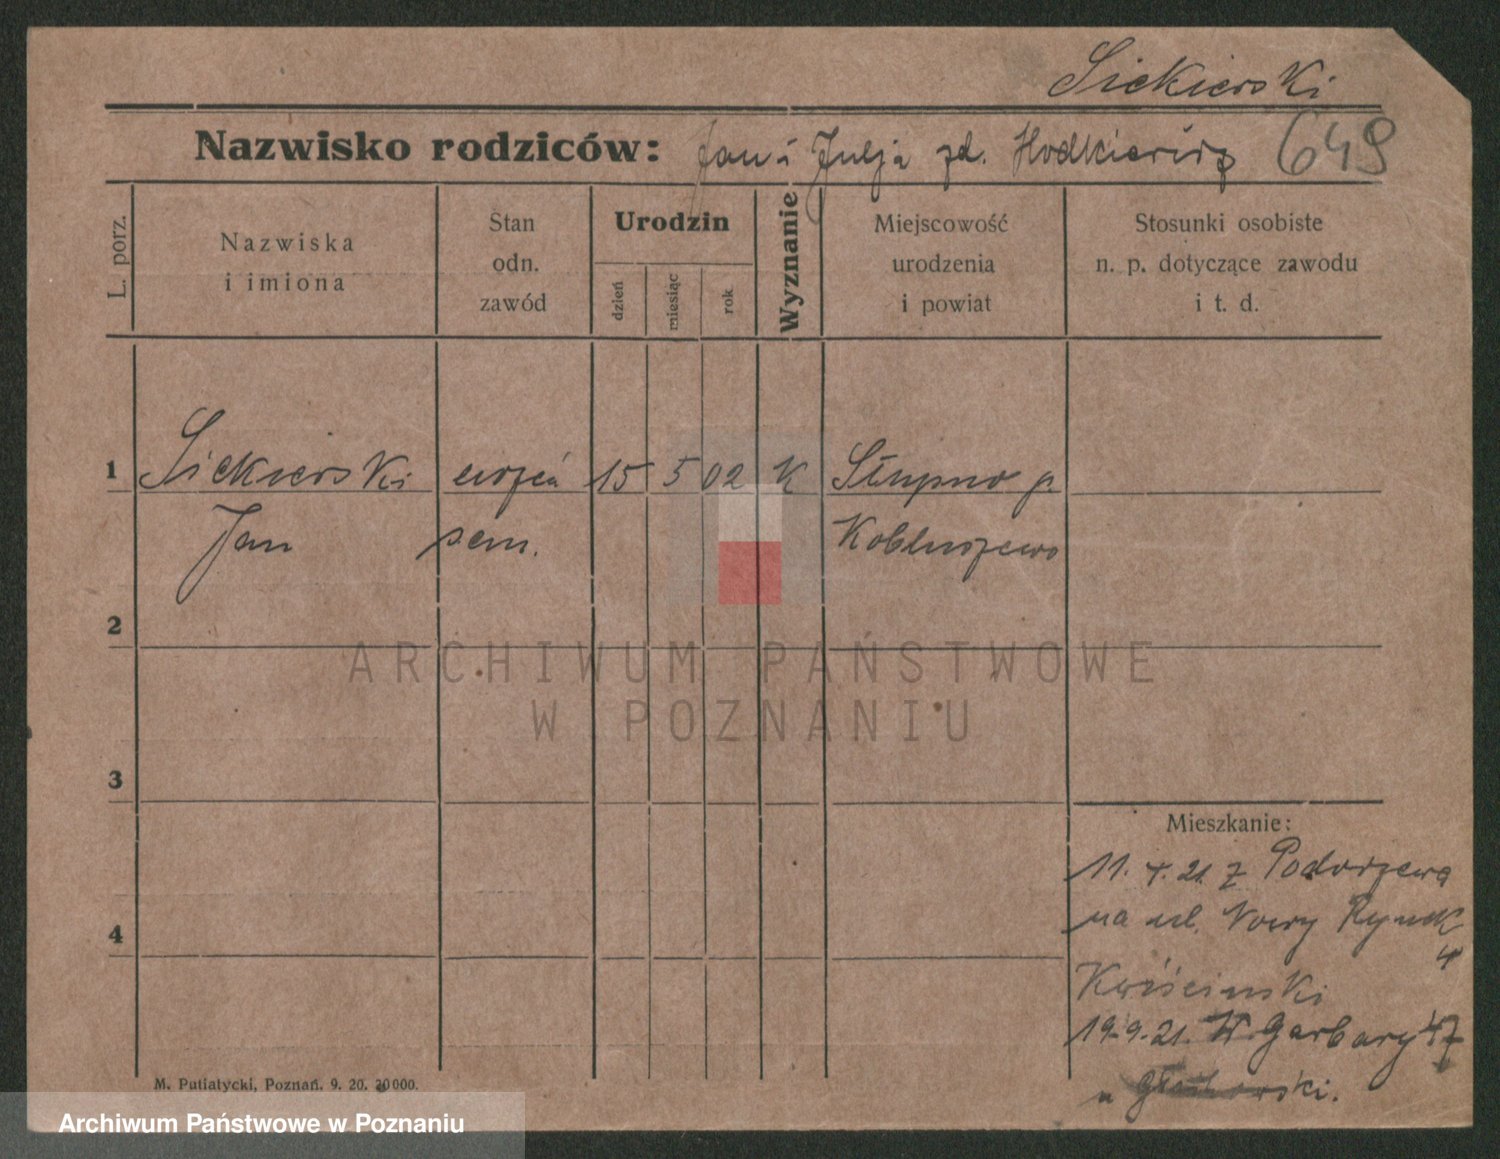 Siekierski
Nazwisko rodziców: Jan i Julja zd. Hodkiewicz 649
L. porz.
Nazwiska
i imiona
Stan
odn.
zawód
Urodzin
dzień
miesiąc
rok
Wyznanie
Miejscowość
urodzenia
i powiat
Stosunki osobiste
n. p. dotyczące zawodu
i t. d.
1 Siekierski uczeń 15 5 02 K Słupno p.
Jan sem. Kobluszewo
2
ARCHIWUM PAŃSTWOWE
W POZNANIU
3
Mieszkanie:
11. 21. z Podorzewa
4
na ul. Nowy Rynek
4
19.9.21. Garbary 47
u
M. Putiatycki, Poznań. 9. 20. 20000.
Archiwum Państwowe w Poznaniu